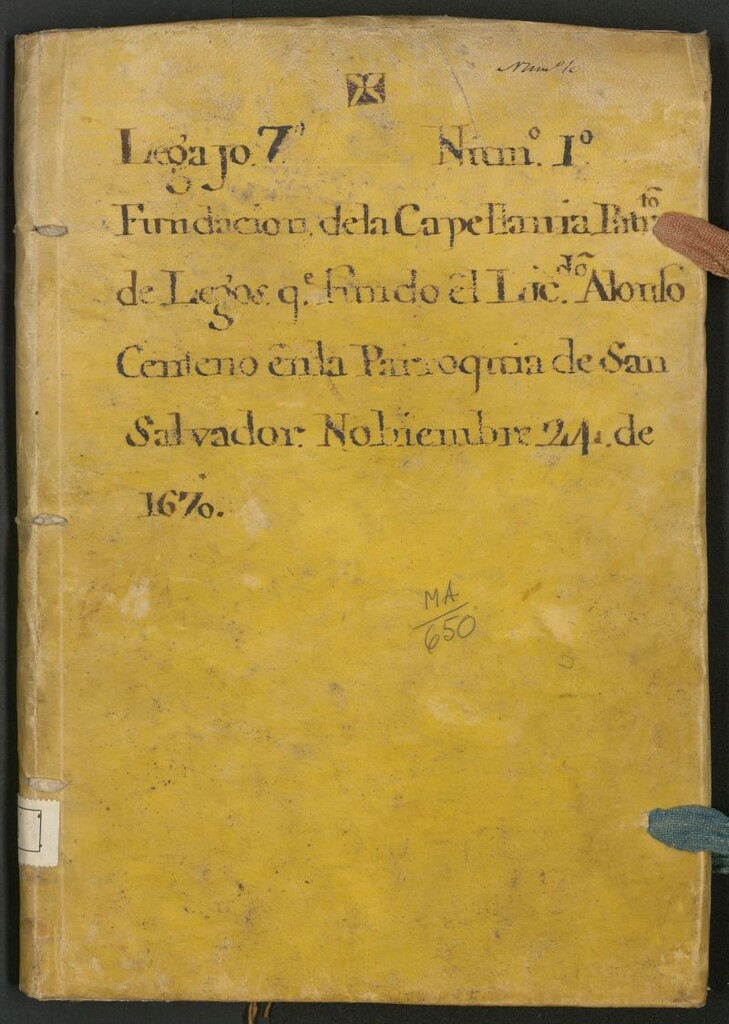 Num.º 1º
Legajo. 7º Num.º 1º
Fundacion, dela Capellania Patrto
de Legos. q.e fundo èl Licdo. Alonso
Centeno èn la Parroquia de San
Salvador. Nobiembre 24. de
1670.
MA
650